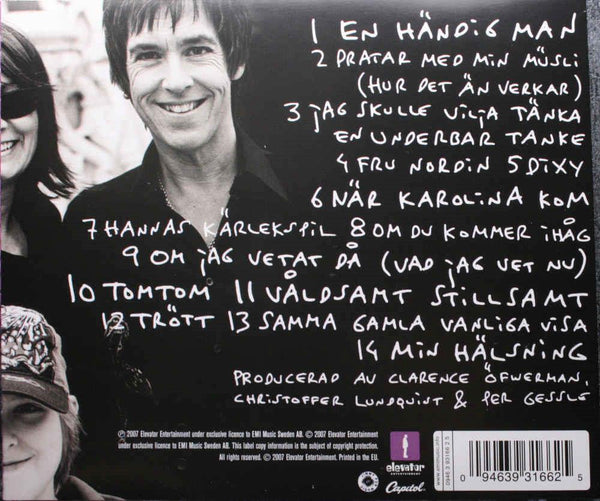 1 EN HÄNDIG MAN
2 PRATAR MED MIN MÜSLI
(HUR DET ÄN VERKAR)
3 JAG SKULLE VILJA TÄNKA
EN UNDERBAR TANKE
4 FRU NORDIN 5 DIXY
6 NÄR KAROLINA KOM
7 HANNAS KÄRLEKSPIL 8 OM DU KOMMER IHÅG
9 OM JAG VETAT DÅ (VAD JAG VET NU)
10 TOMTOM 11 VÅLDSAMT STILLSAMT
12 TRÖTT 13 SAMMA GAMLA VANLIGA VISA
14 MIN HÄLSNING
PRODUCERAD AV CLARENCE ÖFWERMAN,
CHRISTOFFER LUNDQUIST & PER GESSLE
℗ 2007 Elevator Entertainment under exclusive licence to EMI Music Sweden AB. © 2007 Elevator Entertainment
under exclusive licence to EMI Music Sweden AB. This label copy information is the subject of copyright protection.
All rights reserved. © 2007 Elevator Entertainment. Printed in the EU.
elevator
ENTERTAINMENT
Capitol.
0 94639 31662 5